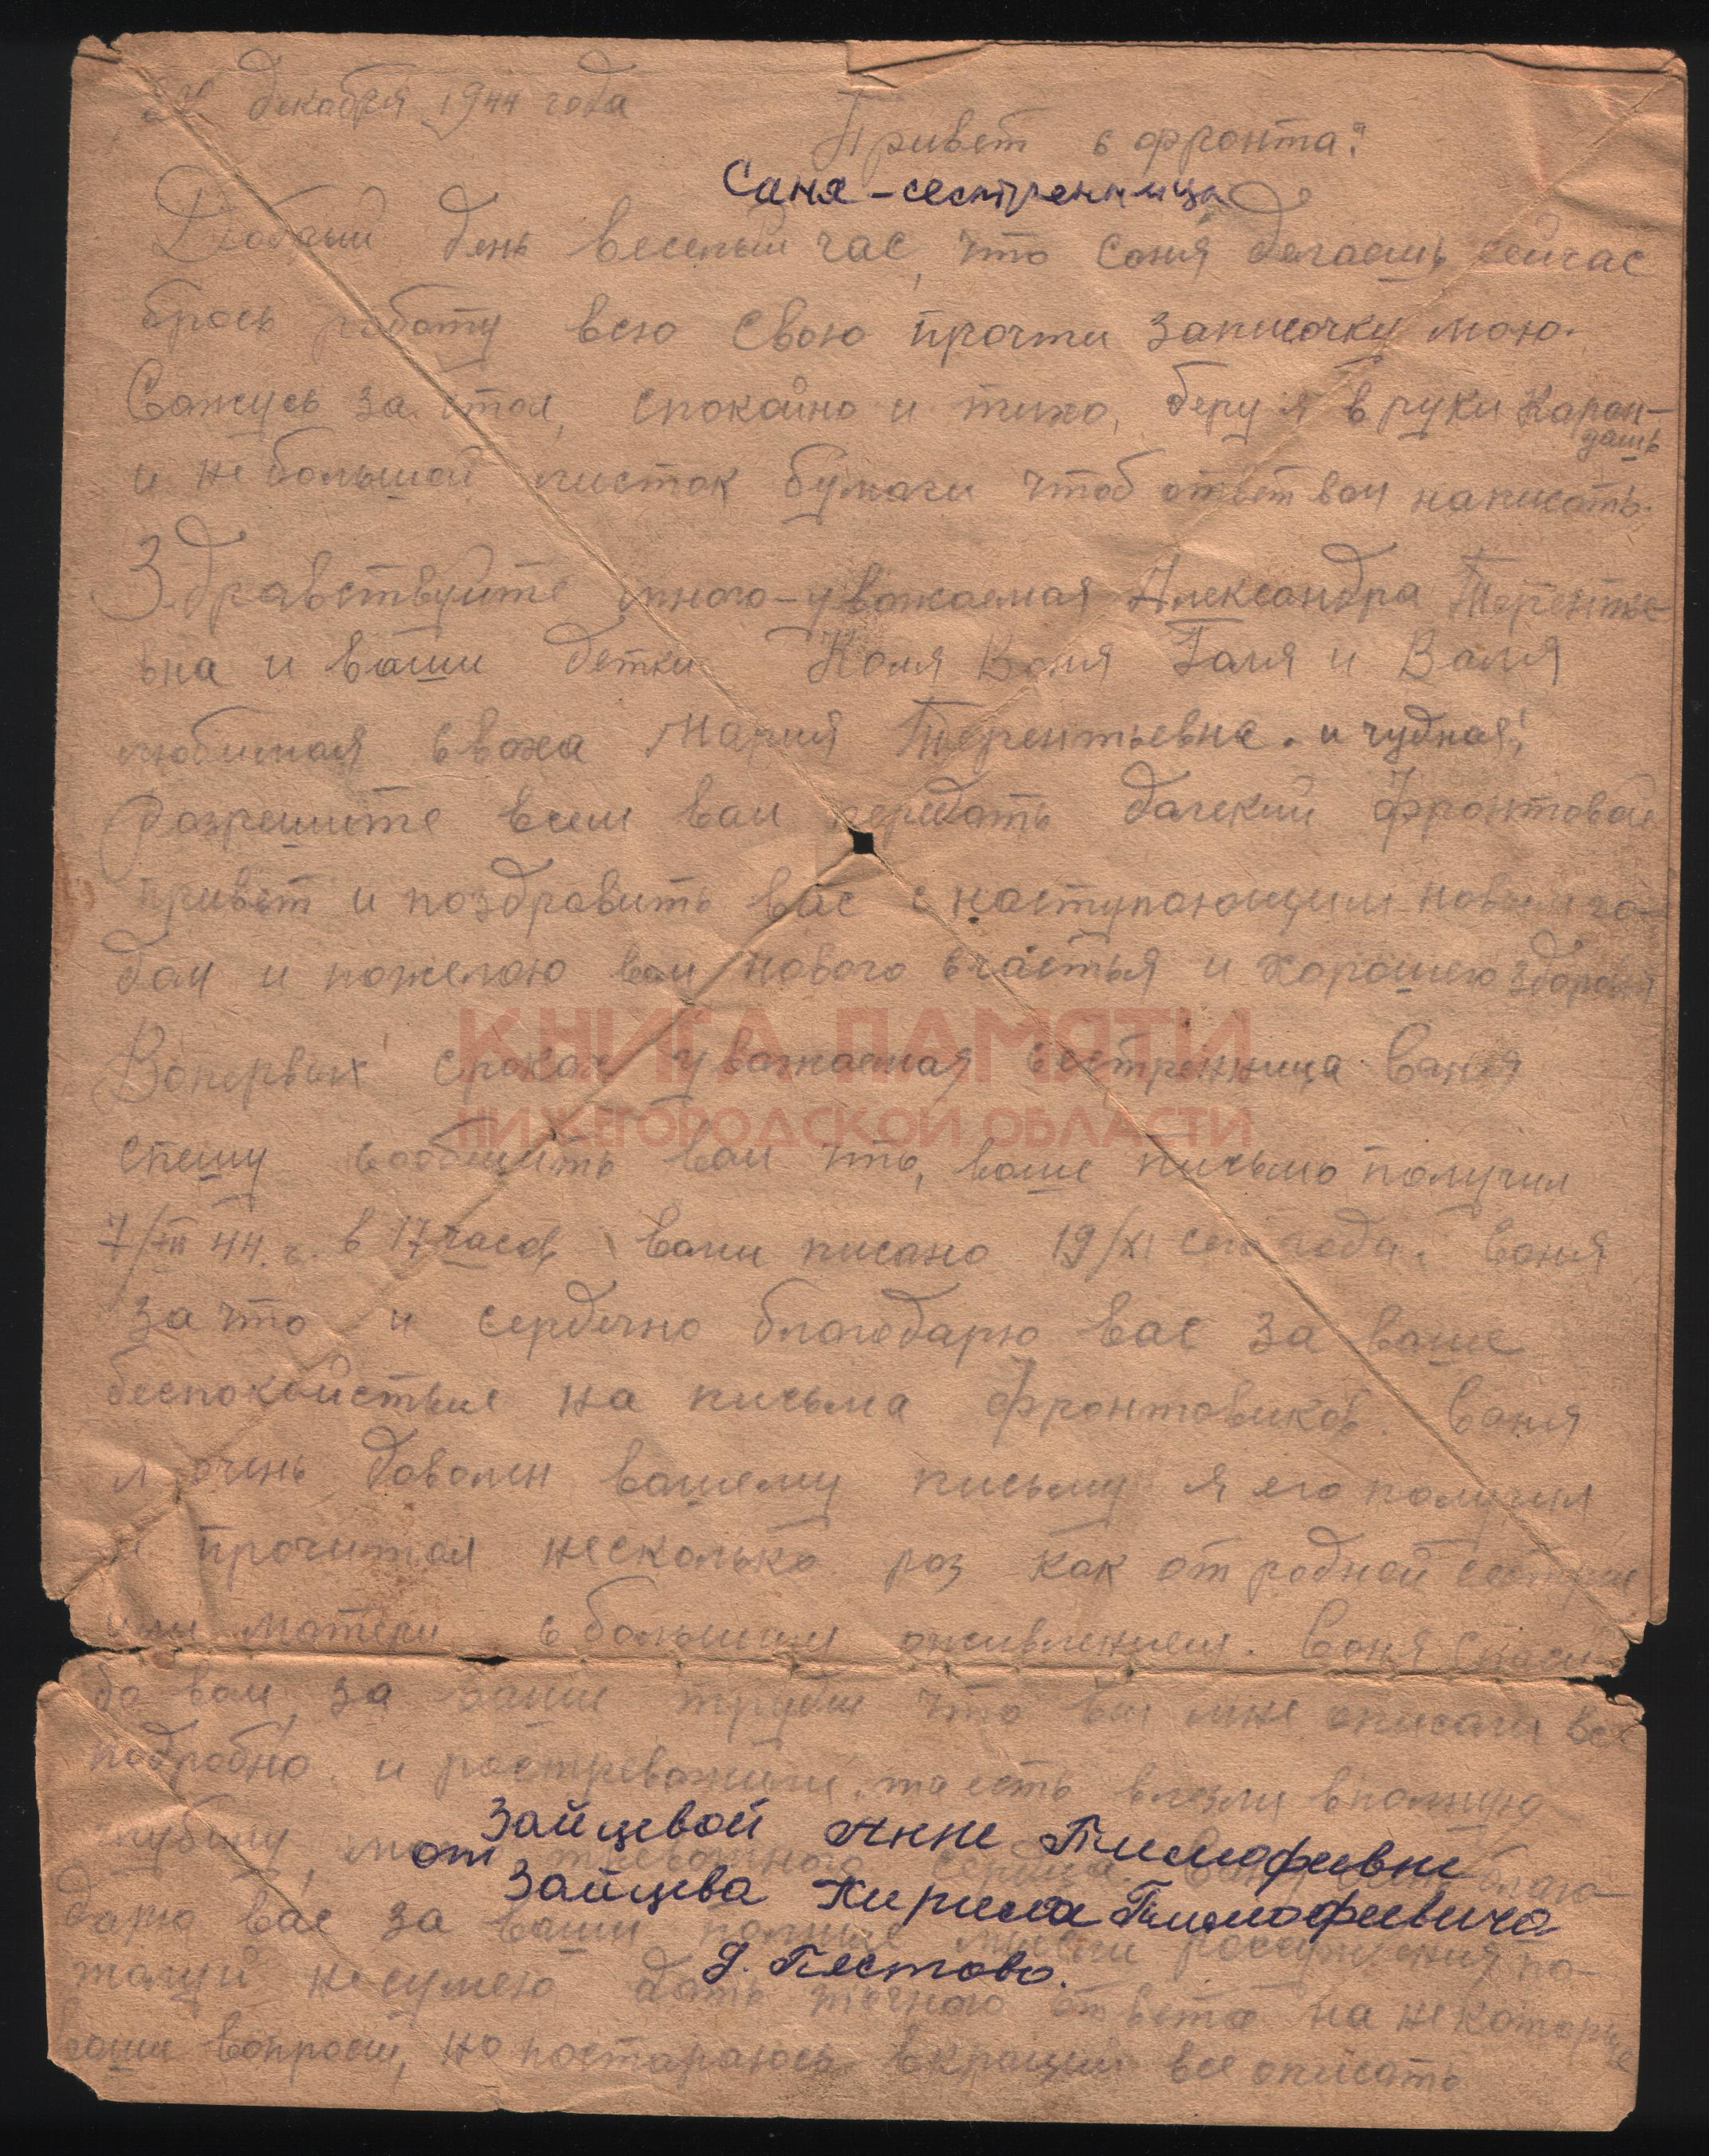 декабря 1944 года
Привет с фронта:
Саня - сестренница
Добрый день веселый час, что Саня делаешь сейчас
брось работу всю свою прочти записочку мою.
Сажусь за стол, спокойно и тихо, беру я в руки каран-
дашь
и небольшой листок бумаги чтоб ответ вам написать.
Здравствуйте много-уважаемая Александра Терентье-
вна и ваши детки Коля Ваня Галя и Валя
любимая сваха Мария Терентьевна. и чудная!
разрешите всем вам передать далекий фронтовой
привет и поздравить вас с наступающим новым го-
дом и пожелаю вам нового счастья и хорошего здоровья
Вопервых строках уважаемая сестренница Саня
спешу сообщить вам что, ваше письмо получил
7/XII 44. г. в 17 часов вами писано 19/XI сего года. Саня
за что и сердечно благодарю вас за ваше
беспокойствие на письма фронтовиков. Саня
я очень доволен вашему письму я его получил
и прочитал несколько раз как от родной сестры
или матери с большим оживлением. Саня спаси-
бо вам за ваши труды что вы мне описали все
подробно. и растревожили. то есть влезли в полную
глубину, сердца. Саня благо-
Зайцевой Анне Тимофевне
от
Зайцева Кирила Тимофеевича
дарю вас за ваши полные мысли рассуждения по-
д. Пестово.
жалуй не сумею дать точного ответа на некоторые
ваши вопросы, но постараюсь вкрации все описать
КНИГА ПАМЯТИ
НИЖЕГОРОДСКОЙ ОБЛАСТИ